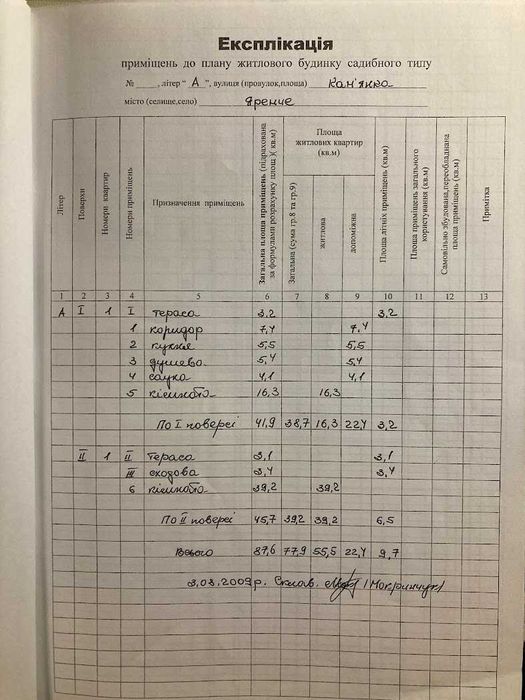 Експлікація
приміщень до плану житлового будинку садибного типу
№ ____, літер " А ", вулиця (провулок,площа) Кам'янка
місто (селище,село) Яремче
Літер
Поверхи
Номери квартир
Номери приміщень
Призначення приміщень
Загальна площа приміщень (підрахована за формулами розрахунку площ)( кв.м)
Площа житлових квартир (кв.м)
Загальна (сума гр.8 та гр.9)
житлова
допоміжна
Площа літніх приміщень (кв.м)
Площа приміщень загального користування (кв.м)
Самовільно збудована,переобладнана площа приміщень (кв.м)
Примітка
1 2 3 4 5 6 7 8 9 10 11 12 13
А І 1 І тераса 3,2 3,2
1 коридор 7,4 7,4
2 кухня 5,5 5,5
3 душева 5,4 5,4
4 сауна 4,1 4,1
5 кімната 16,3 16,3
По І поверсі 41,9 38,7 16,3 22,4 3,2
ІІ 1 ІІ тераса 3,1 3,1
ІІІ сходова 3,4 3,4
6 кімната 39,2 39,2
По ІІ поверсі 45,7 39,2 39,2 6,5
Всього 87,6 77,9 55,5 22,4 9,7
3.03.2009р. Склав.